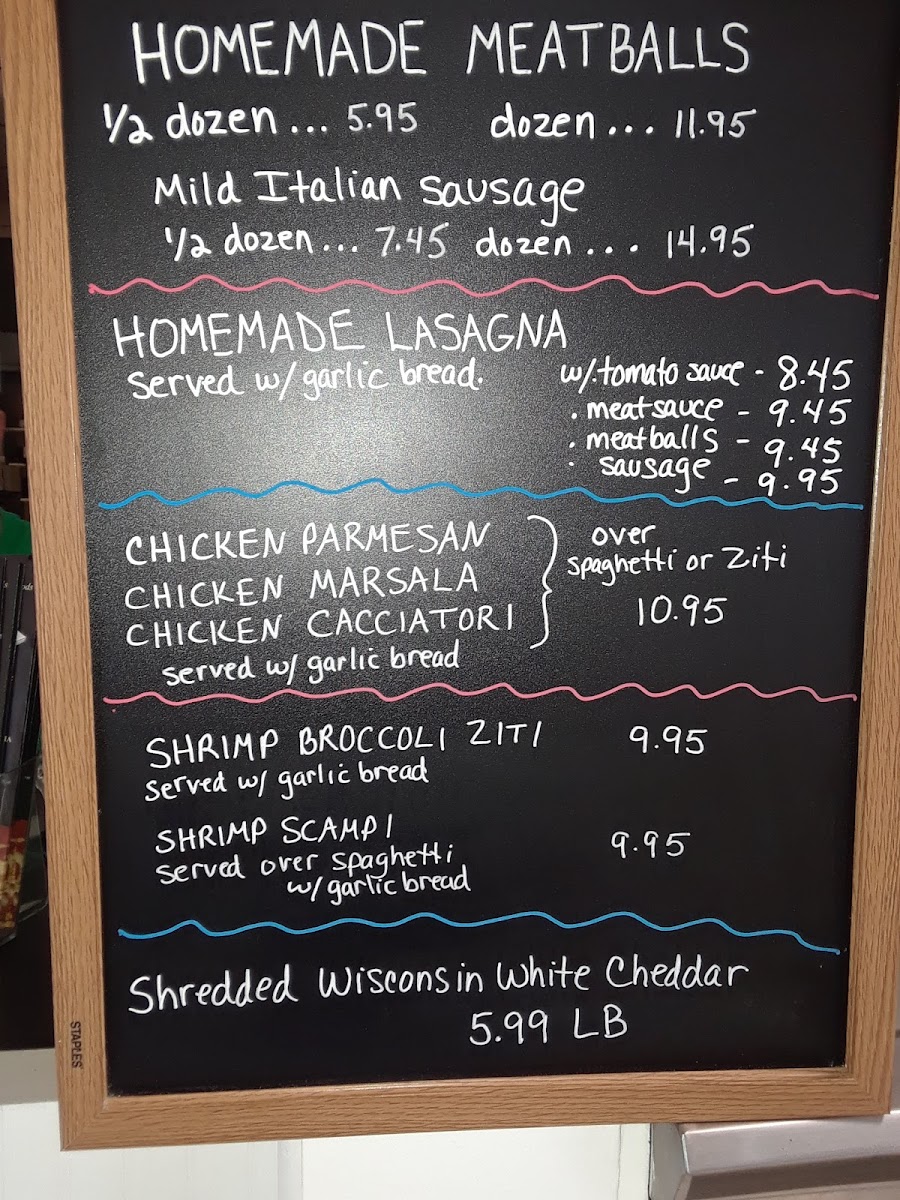 HOMEMADE MEATBALLS
1/2 dozen ... 5.95 dozen ... 11.95
Mild Italian Sausage
1/2 dozen ... 7.45 dozen ... 14.95
HOMEMADE LASAGNA
Served w/ garlic bread. w/.tomato sauce - 8.45
. meatsauce - 9.45
. meatballs - 9.45
. sausage - 9.95
CHICKEN PARMESAN
CHICKEN MARSALA
CHICKEN CACCIATORI
served w/ garlic bread
over
spaghetti or Ziti
10.95
SHRIMP BROCCOLI ZITI 9.95
served w/ garlic bread
SHRIMP SCAMPI 9.95
served over spaghetti
w/garlic bread
Shredded Wisconsin White Cheddar
5.99 LB
STAPLES